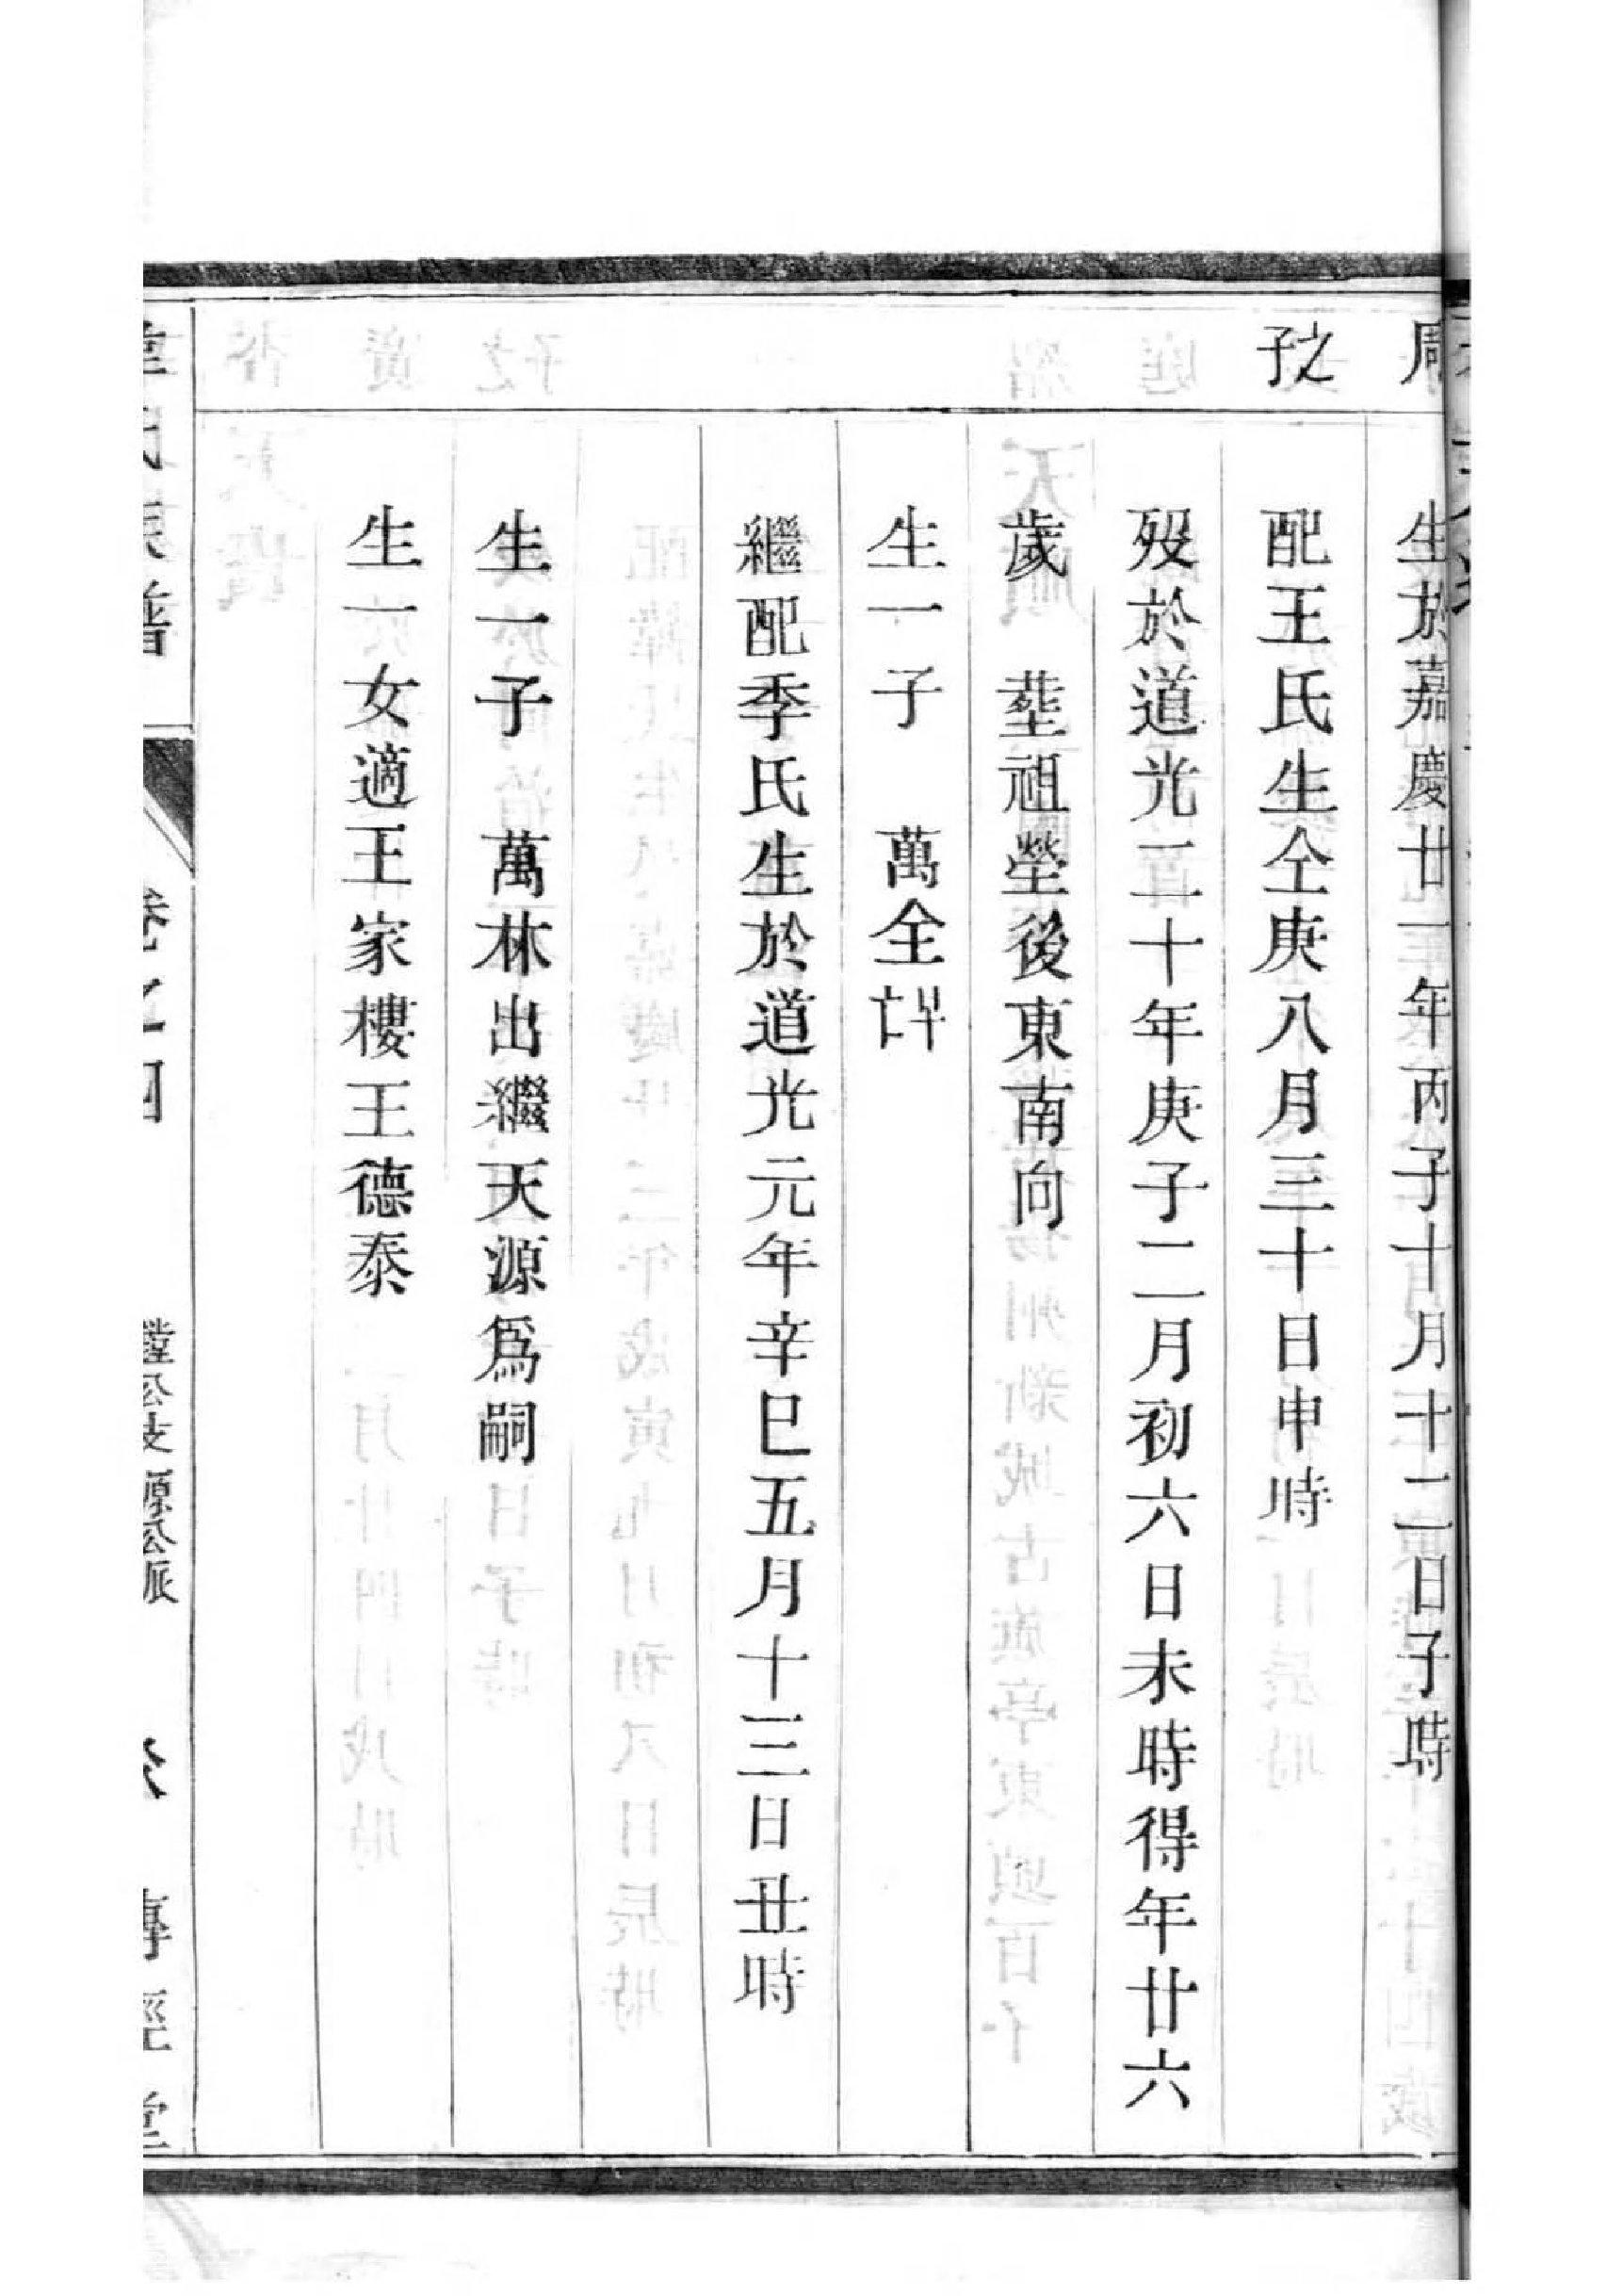 周
之子
生於嘉慶廿一年丙子十月十二日子時
配王氏生仝庚八月三十日申時
歿於道光二十年庚子二月初六日未時得年廿六
歲　塟祖塋後東南向
生一子　萬全
繼配季氏生於道光元年辛巳五月十三日丑時
生一子　萬林出繼天源爲嗣
生一女適王家樓王德泰
譜
卷之四
公支源公派
傳經堂